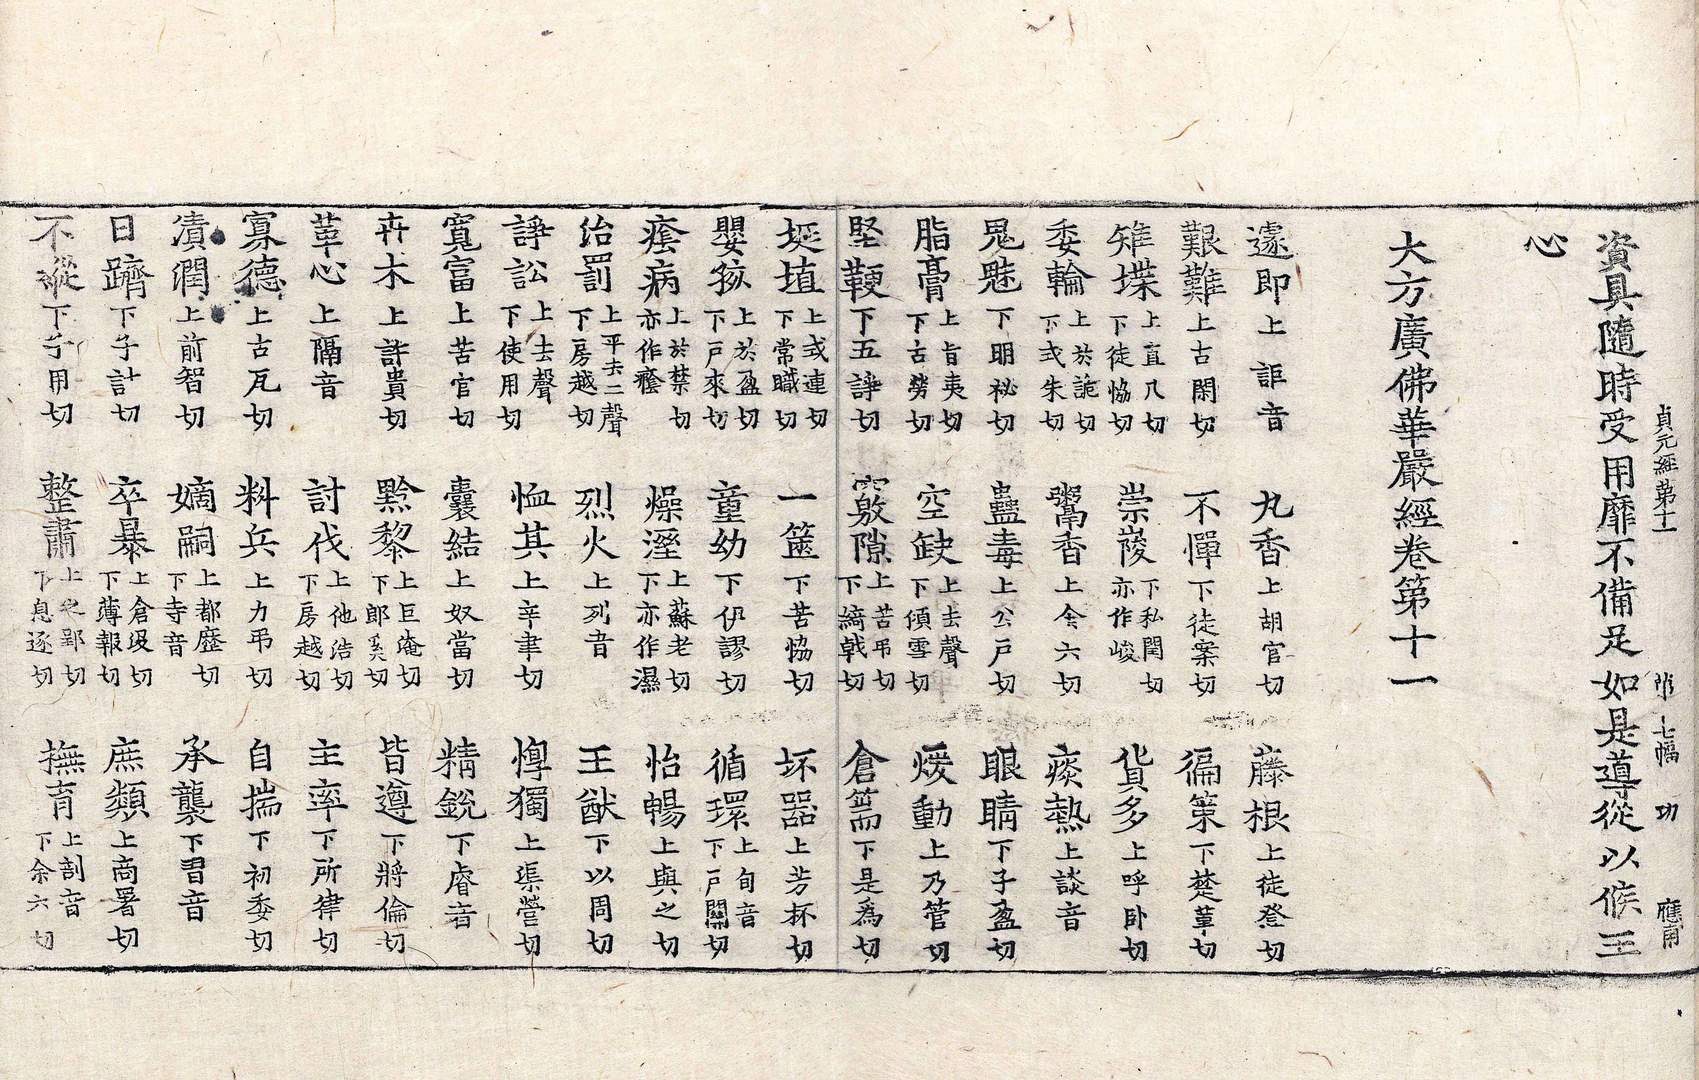 資具隨時受用靡不備足如是導從以候王
心
貞元經第十一 第七幅 功 應甫
大方廣佛華嚴經卷第十一
遽即上詎音 丸香上胡官切 藤根上徒登切
艱難上古閑切 不憚下徒案切 徧策下楚革切
雉堞上直几切下徒恊切 崇㜝下私閏切亦作峻 貨多上呼卧切
委輪上於詭切下式朱切 鬻香上余六切 痰熱上談音
鬼魅下明祕切 蠱毒上公戶切 眼睛下子盈切
脂膏上旨夷切下古勞切 空缺上去聲下傾雪切 煖動上乃管切
堅鞕下五諍切 竅隙上苦弔切下綺戟切 倉篅下是為切
埏埴上式連切下常職切 一篋下苦恊切 坏器上芳杯切
嬰孩上於盈切下戶來切 童幼下伊謬切 循環上旬音下戶關切
瘖病上於禁切亦作癊 燥溼上蘇老切下亦作濕 怡暢上與之切
治罰上平去二聲下房越切 烈火上列音 王猷下以周切
諍訟上去聲下使用切 恤其上辛聿切 惸獨上渠營切
寬富上苦官切 囊結上奴當切 精銳下睿音
卉木上許貴切 黔黎上巨淹切下郎奚切 皆遵下將倫切
革心上隔音 討伐上他浩切下房越切 主率下所律切
寡德上古瓦切 料兵上力弔切 自揣下初委切
漬潤上前智切 嫡嗣上都歷切下寺音 承襲下習音
日躋下子計切 卒暴上倉没切下薄報切 庶類上商署切
不縱下子用切 整肅上之郢切下息逐切 撫育上剖音下余六切